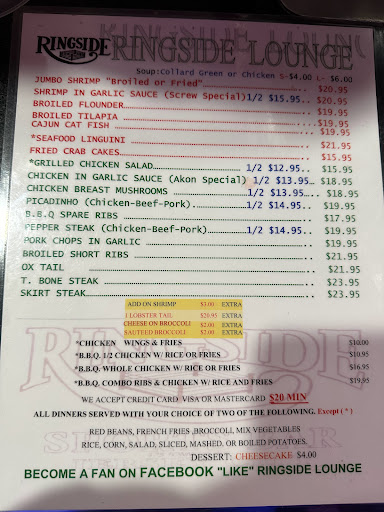 RINGSIDE RINGSIDE LOUNGE
Soup:Collard Green or Chicken S-$4.00 L- $6.00
JUMBO SHRIMP "Broiled or Fried" $20.95
SHRIMP IN GARLIC SAUCE (Screw Special) 1/2 $15.95.. $20.95
BROILED FLOUNDER $19.95
BROILED TILAPIA $19.95
CAJUN CAT FISH $19.95
*SEAFOOD LINGUINI $21.95
FRIED CRAB CAKES $15.95
*GRILLED CHICKEN SALAD 1/2 $12.95.. $15.95
CHICKEN IN GARLIC SAUCE (Akon Special) 1/2 $13.95... $18.95
CHICKEN BREAST MUSHROOMS 1/2 $13.95... $18.95
PICADINHO (Chicken-Beef-Pork) 1/2 $14.95.. $19.95
B.B.Q SPARE RIBS $17.95
PEPPER STEAK (Chicken-Beef-Pork) 1/2 $14.95.. $19.95
PORK CHOPS IN GARLIC $19.95
BROILED SHORT RIBS $21.95
OX TAIL $21.95
T. BONE STEAK $23.95
SKIRT STEAK $23.95
ADD ON SHRIMP $3.00 EXTRA
1 LOBSTER TAIL $20.95 EXTRA
CHEESE ON BROCCOLI $2.00 EXTRA
SAUTEED BROCCOLI $2.00 EXTRA
RINGSIDE
*CHICKEN WINGS & FRIES $10.00
*B.B.Q. 1/2 CHICKEN W/ RICE OR FRIES $10.95
*B.B.Q. WHOLE CHICKEN W/ RICE OR FRIES $16.95
*B.B.Q. COMBO RIBS & CHICKEN W/ RICE AND FRIES $19.95
WE ACCEPT CREDIT CARD. VISA OR MASTERCARD $20 MIN
ALL DINNERS SERVED WITH YOUR CHOICE OF TWO OF THE FOLLOWING. Except ( * )
RED BEANS, FRENCH FRIES ,BROCCOLI, MIX VEGETABLES
RICE, CORN, SALAD, SLICED, MASHED, OR BOILED POTATOES.
DESSERT: CHEESECAKE $4.00
BECOME A FAN ON FACEBOOK "LIKE" RINGSIDE LOUNGE